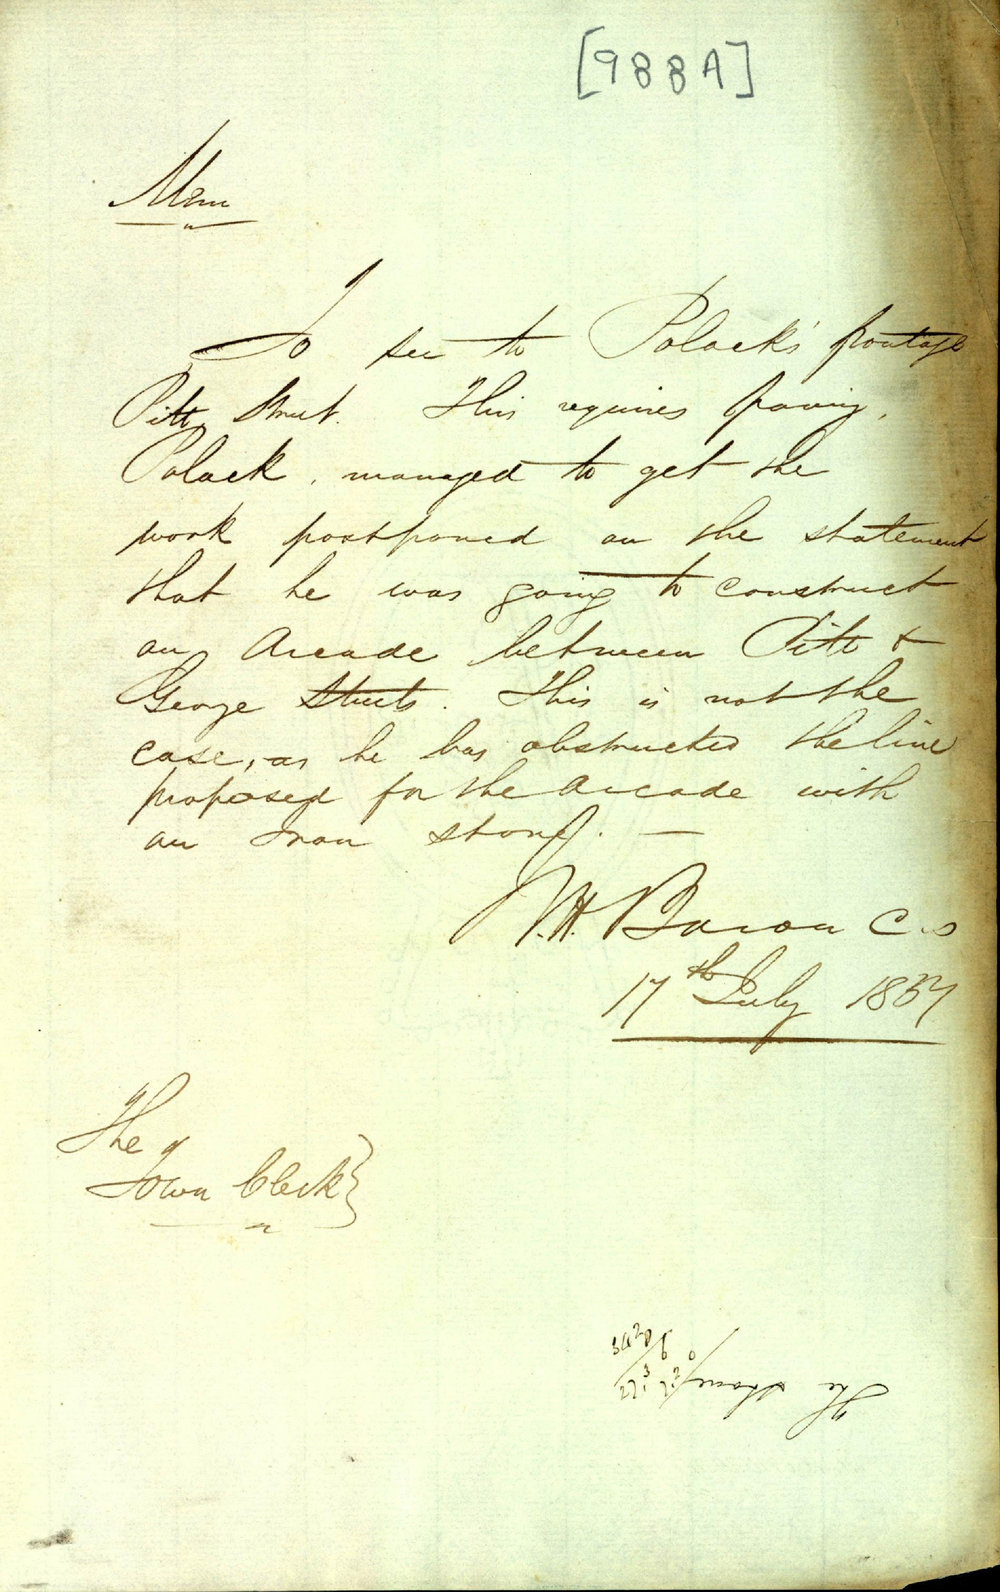 [988A]
Mem
To see to Polack's frontage
Pitt Street. This requires paving.
Polack, managed to get the
work postponed on the statement
that he was going to construct
an Arcade between Pitt &
George Streets. This is not the
case, as he has obstructed the line
proposed for the arcade with
an Iron store. —
W.H. Baron C.S
17th July 1857
The
Town Clerk
The